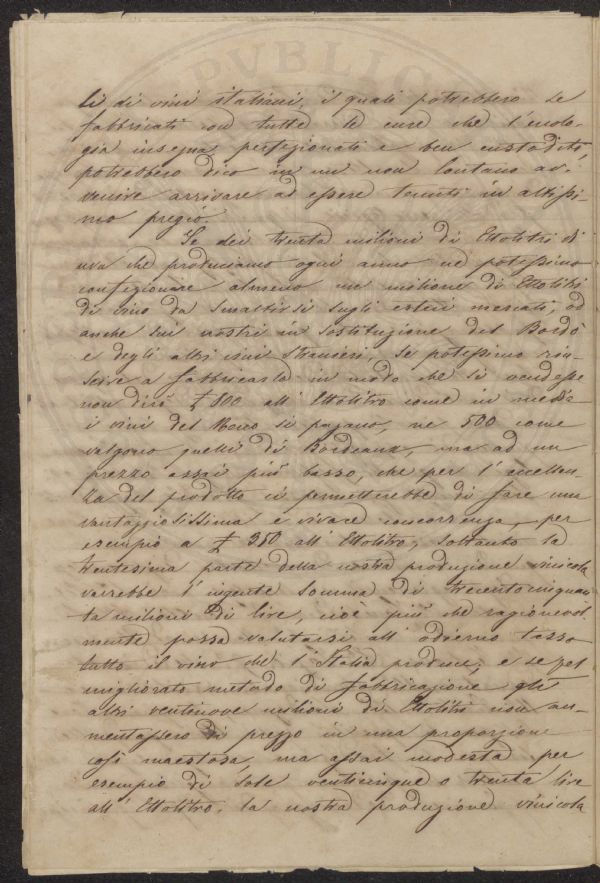 PVBLICA
li di vini italiani, i quali potrebbero se
fabbricati con tutte le cure che l'enolo-
gia insegna perfezionati e ben custoditi,
potrebbero dico in un non lontano av-
venire arrivare ad essere tenuti in altissi-
mo pregio.
Se dei trenta milioni di Ettolitri di
uva che produciamo ogni anno ne potessimo
confezionare almeno un milione di Ettolitri
di vino da smaltirsi sugli esteri mercati, od
anche sui nostri in sostituzione del Bordò
e degli altri vini stranieri, se potessimo riu-
scire a fabbricarlo in modo che si vendesse
non dirò £ 800 all' Ettolitro come in media
i vini del si pagano, ne 500 come
valgono quelli di Bordeaux, ma ad un
prezzo assai più basso, che per l'eccellen-
za del prodotto ci permetterebbe di fare una
vantaggiosissima e vivace concorrenza, per
esempio a £ 350 all' Ettolitro, soltanto la
trentesima parte della nostra produzione vinicola
varrebbe l'ingente somma di trecentocinquan-
ta milioni di lire, cioè più che ragionevol-
mente possa valutarsi all' odierno tasso
tutto il vino che l'Italia produce; e se pel
migliorato metodo di fabbricazione gli
altri ventinove milioni di Ettolitri non au-
mentassero di prezzo in una proporzione
così maestosa, ma assai modesta per
esempio di sole venticinque o trenta lire
all' Ettolitro, la nostra produzione vinicola